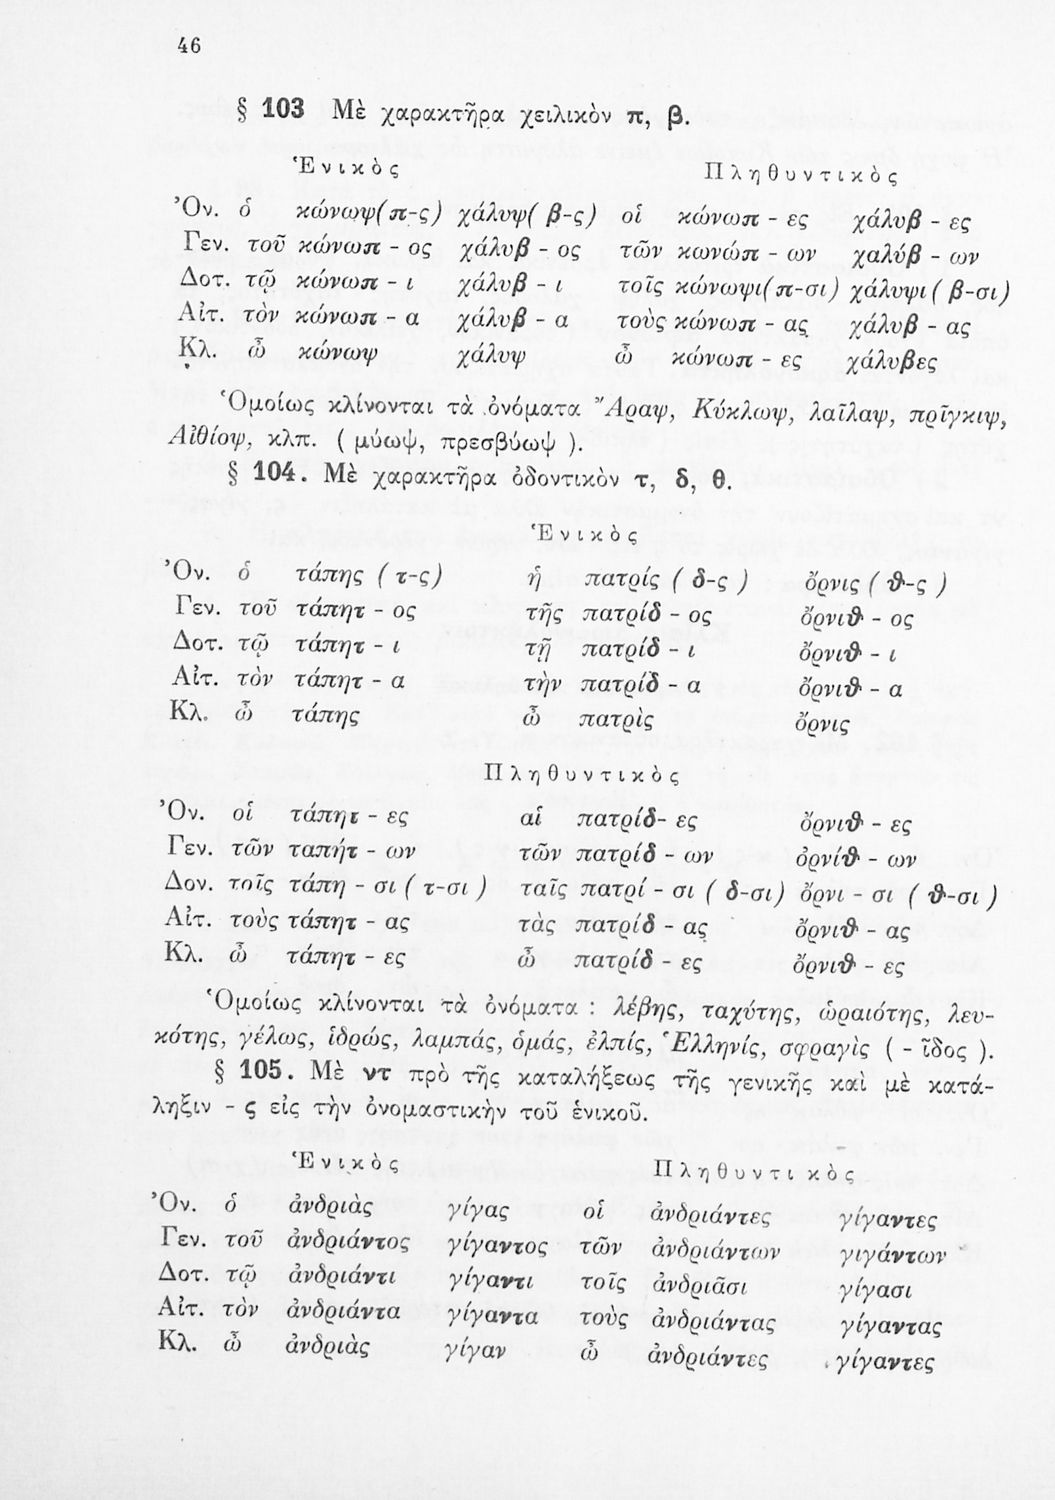 46
§ 103 Μὲ χαρακτῆρα χειλικὸν π, β.
Ἑνικὸς Πληθυντικὸς
Ὀν. ὁ κώνωψ(π-ς) χάλυψ( β-ς) οἱ κώνωπ - ες χάλυβ - ες
Γεν. τοῦ κώνωπ - ος χάλυβ - ος τῶν κωνώπ - ων χαλύβ - ων
Δοτ. τῷ κώνωπ - ι χάλυβ - ι τοῖς κώνωψι(π-σι) χάλυψι ( β-σι)
Αἰτ. τὸν κώνωπ - α χάλυβ - α τοὺς κώνωπ - ας χάλυβ - ας
Κλ. ὦ κώνωψ χάλυψ ὦ κώνωπ - ες χάλυβες
Ὁμοίως κλίνονται τὰ ὀνόματα Ἄραψ, Κύκλωψ, λαῖλαψ, πρῖγκιψ,
Αἰθίοψ, κλπ. ( μύωψ, πρεσβύωψ ).
§ 104. Μὲ χαρακτῆρα ὀδοντικὸν τ, δ, θ.
Ἑνικὸς
Ὀν. ὁ τάπης ( τ-ς) ἡ πατρίς ( δ-ς ) ὄρνις ( θ-ς )
Γεν. τοῦ τάπητ - ος τῆς πατρίδ - ος ὄρνιθ - ος
Δοτ. τῷ τάπητ - ι τῇ πατρίδ - ι ὄρνιθ - ι
Αἰτ. τὸν τάπητ - α τὴν πατρίδ - α ὄρνιθ - α
Κλ. ὦ τάπης ὦ πατρὶς ὄρνις
Πληθυντικὸς
Ὀν. οἱ τάπητ - ες αἱ πατρίδ- ες ὄρνιθ - ες
Γεν. τῶν ταπήτ - ων τῶν πατρίδ - ων ὀρνίθ - ων
Δον. τοῖς τάπη - σι ( τ-σι ) ταῖς πατρί - σι ( δ-σι) ὄρνι - σι ( θ-σι )
Αἰτ. τοὺς τάπητ - ας τὰς πατρίδ - ας ὄρνιθ - ας
Κλ. ὦ τάπητ - ες ὦ πατρίδ - ες ὄρνιθ - ες
Ὁμοίως κλίνονται τὰ ὀνόματα : λέβης, ταχύτης, ὡραιότης, λευ-
κότης, γέλως, ἱδρώς, λαμπάς, ὁμάς, ἐλπίς, Ἑλληνίς, σφραγὶς ( - ῖδος ).
§ 105. Μὲ ντ πρὸ τῆς καταλήξεως τῆς γενικῆς καὶ μὲ κατά-
ληξιν - ς εἰς τὴν ὀνομαστικὴν τοῦ ἑνικοῦ.
Ἑνικὸς Πληθυντικὸς
Ὀν. ὁ ἀνδριὰς γίγας οἱ ἀνδριάντες γίγαντες
Γεν. τοῦ ἀνδριάντος γίγαντος τῶν ἀνδριάντων γιγάντων
Δοτ. τῷ ἀνδριάντι γίγαντι τοῖς ἀνδριᾶσι γίγασι
Αἰτ. τὸν ἀνδριάντα γίγαντα τοὺς ἀνδριάντας γίγαντας
Κλ. ὦ ἀνδριὰς γίγαν ὦ ἀνδριάντες γίγαντες